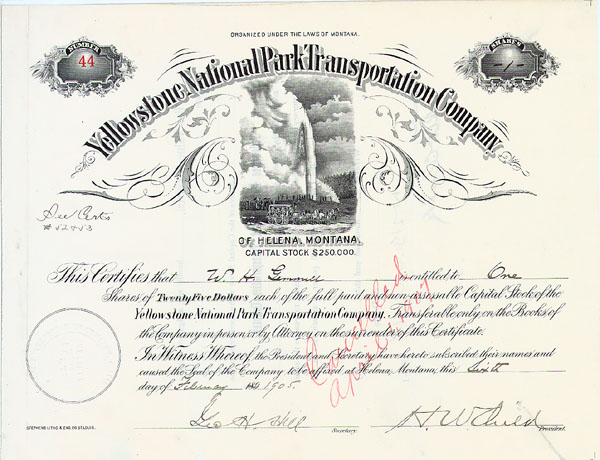 ORGANIZED UNDER THE LAWS OF MONTANA.
NUMBER
44
SHARES
-1-
Yellowstone National Park Transportation Company
OF HELENA, MONTANA.
CAPITAL STOCK $250,000.
See Certs
# 52 & 53
This Certifies that W. H. Gemmell is entitled to One
Shares of Twenty Five Dollars each of the full paid and un-assessable Capital Stock of the
Yellowstone National Park Transportation Company, Transferable only on the Books of
the Company in person or by Attorney on the surrender of this Certificate.
In Witness Whereof, the President and Secretary have hereto subscribed their names and
caused the Seal of the Company to be affixed at Helena, Montana, this Sixth
day of February 1905
Cancelled
April
Geo H. Hill
Secretary.
H. W. Child
President.
STEPHENS LITHO & ENG. CO. ST. LOUIS.